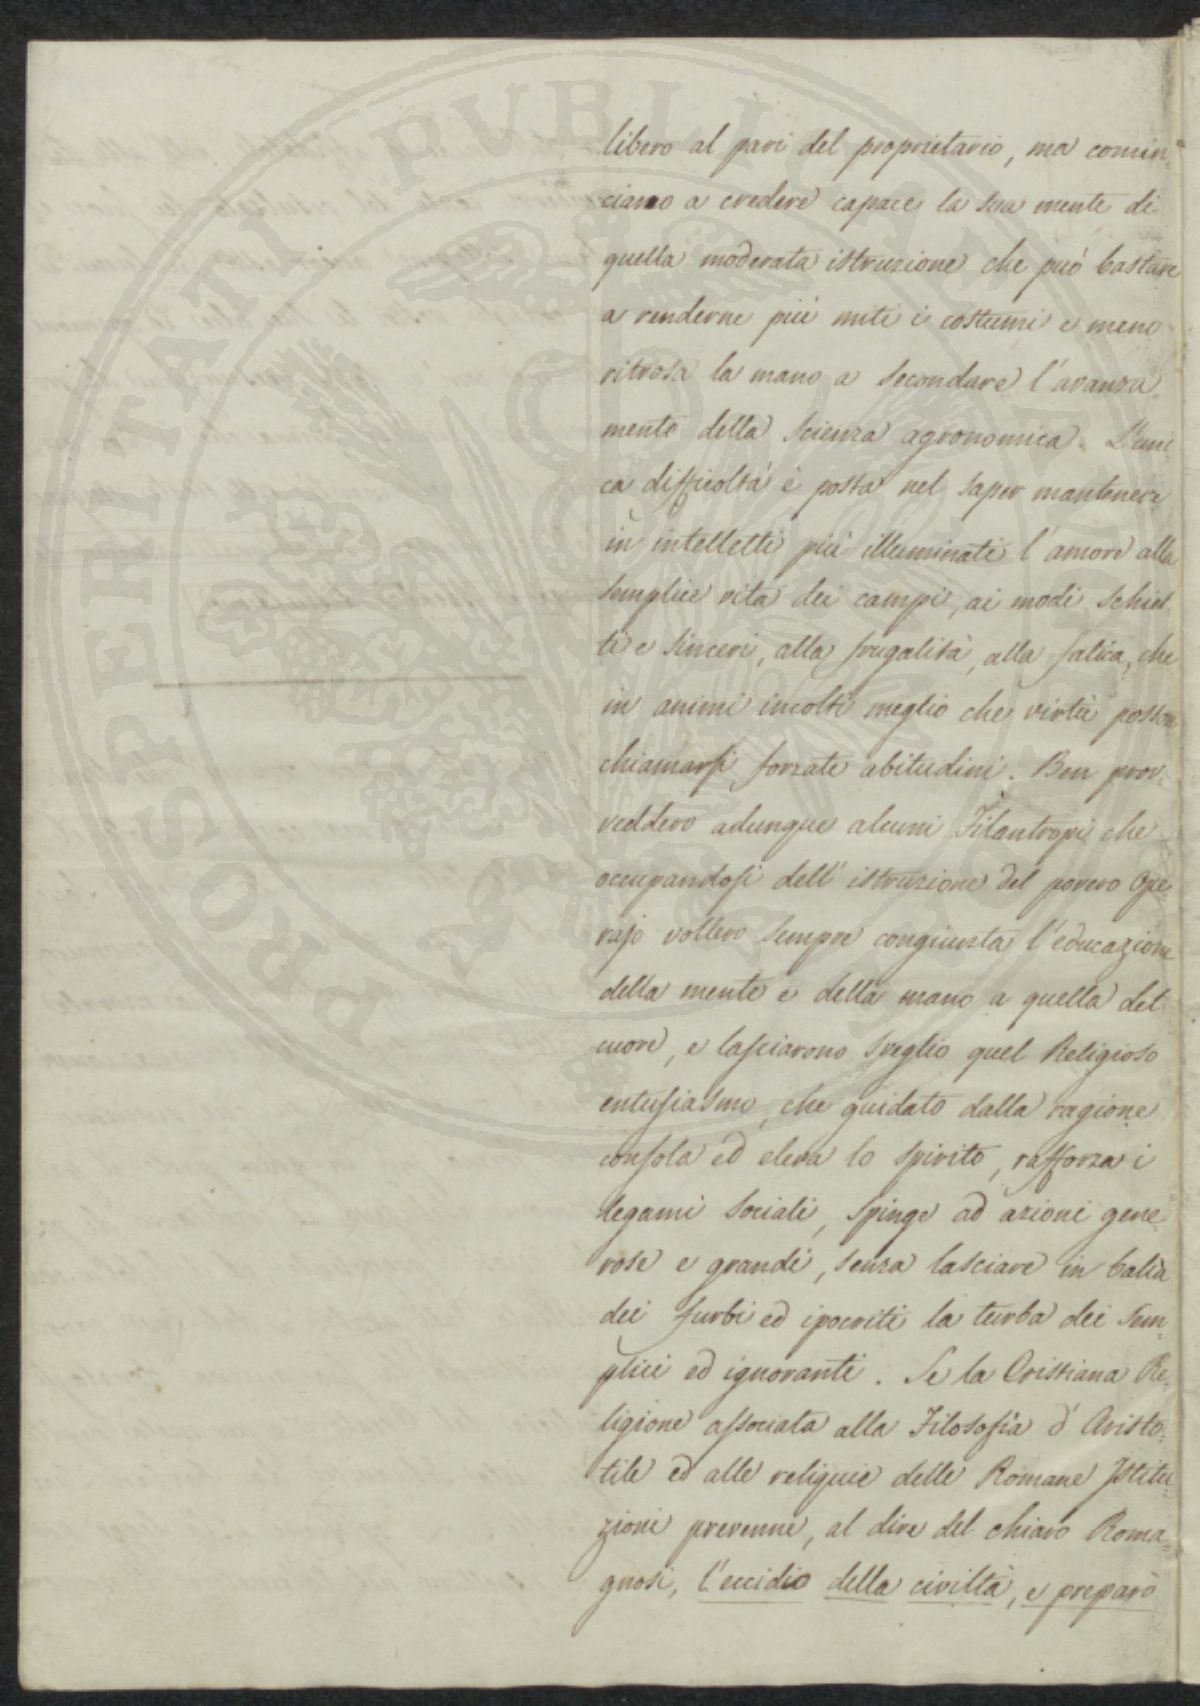 libero al pari del proprietario, ma comin-
ciamo a credere capace la sua mente di
quella moderata istruzione che può bastare
a renderne più miti i costumi e meno
ritrosa la mano a secondare l'avanza-
mento della scienza agronomica. L'uni-
ca difficoltà è posta nel saper mantenere
in intelletti più illuminati l'amore alla
semplice vita dei campi, ai modi schiet-
ti e sinceri, alla frugalità, alla fatica, che
in animi incolti meglio che virtù posson
chiamarsi forzate abitudini. Ben prov-
veddero adunque alcuni Filantropi che
occupandosi dell'istruzione del povero Ope-
rajo vollero sempre congiunta l'educazione
della mente e della mano a quella del
cuore, e lasciarono sveglio quel Religioso
entusiasmo, che guidato dalla ragione
consola ed eleva lo spirito, rafforza i
legami sociali, spinge ad azioni gene-
rose e grandi, senza lasciare in balìa
dei furbi ed ipocriti la turba dei sem-
plici ed ignoranti. Se la Cristiana Re-
ligione associata alla Filosofia d'Aristo-
tile ed alle reliquie delle Romane Istitu-
zioni prevenne, al dire del chiaro Roma-
gnosi, l'eccidio della civiltà, e preparò
PROSPERITATI PUBLICAE